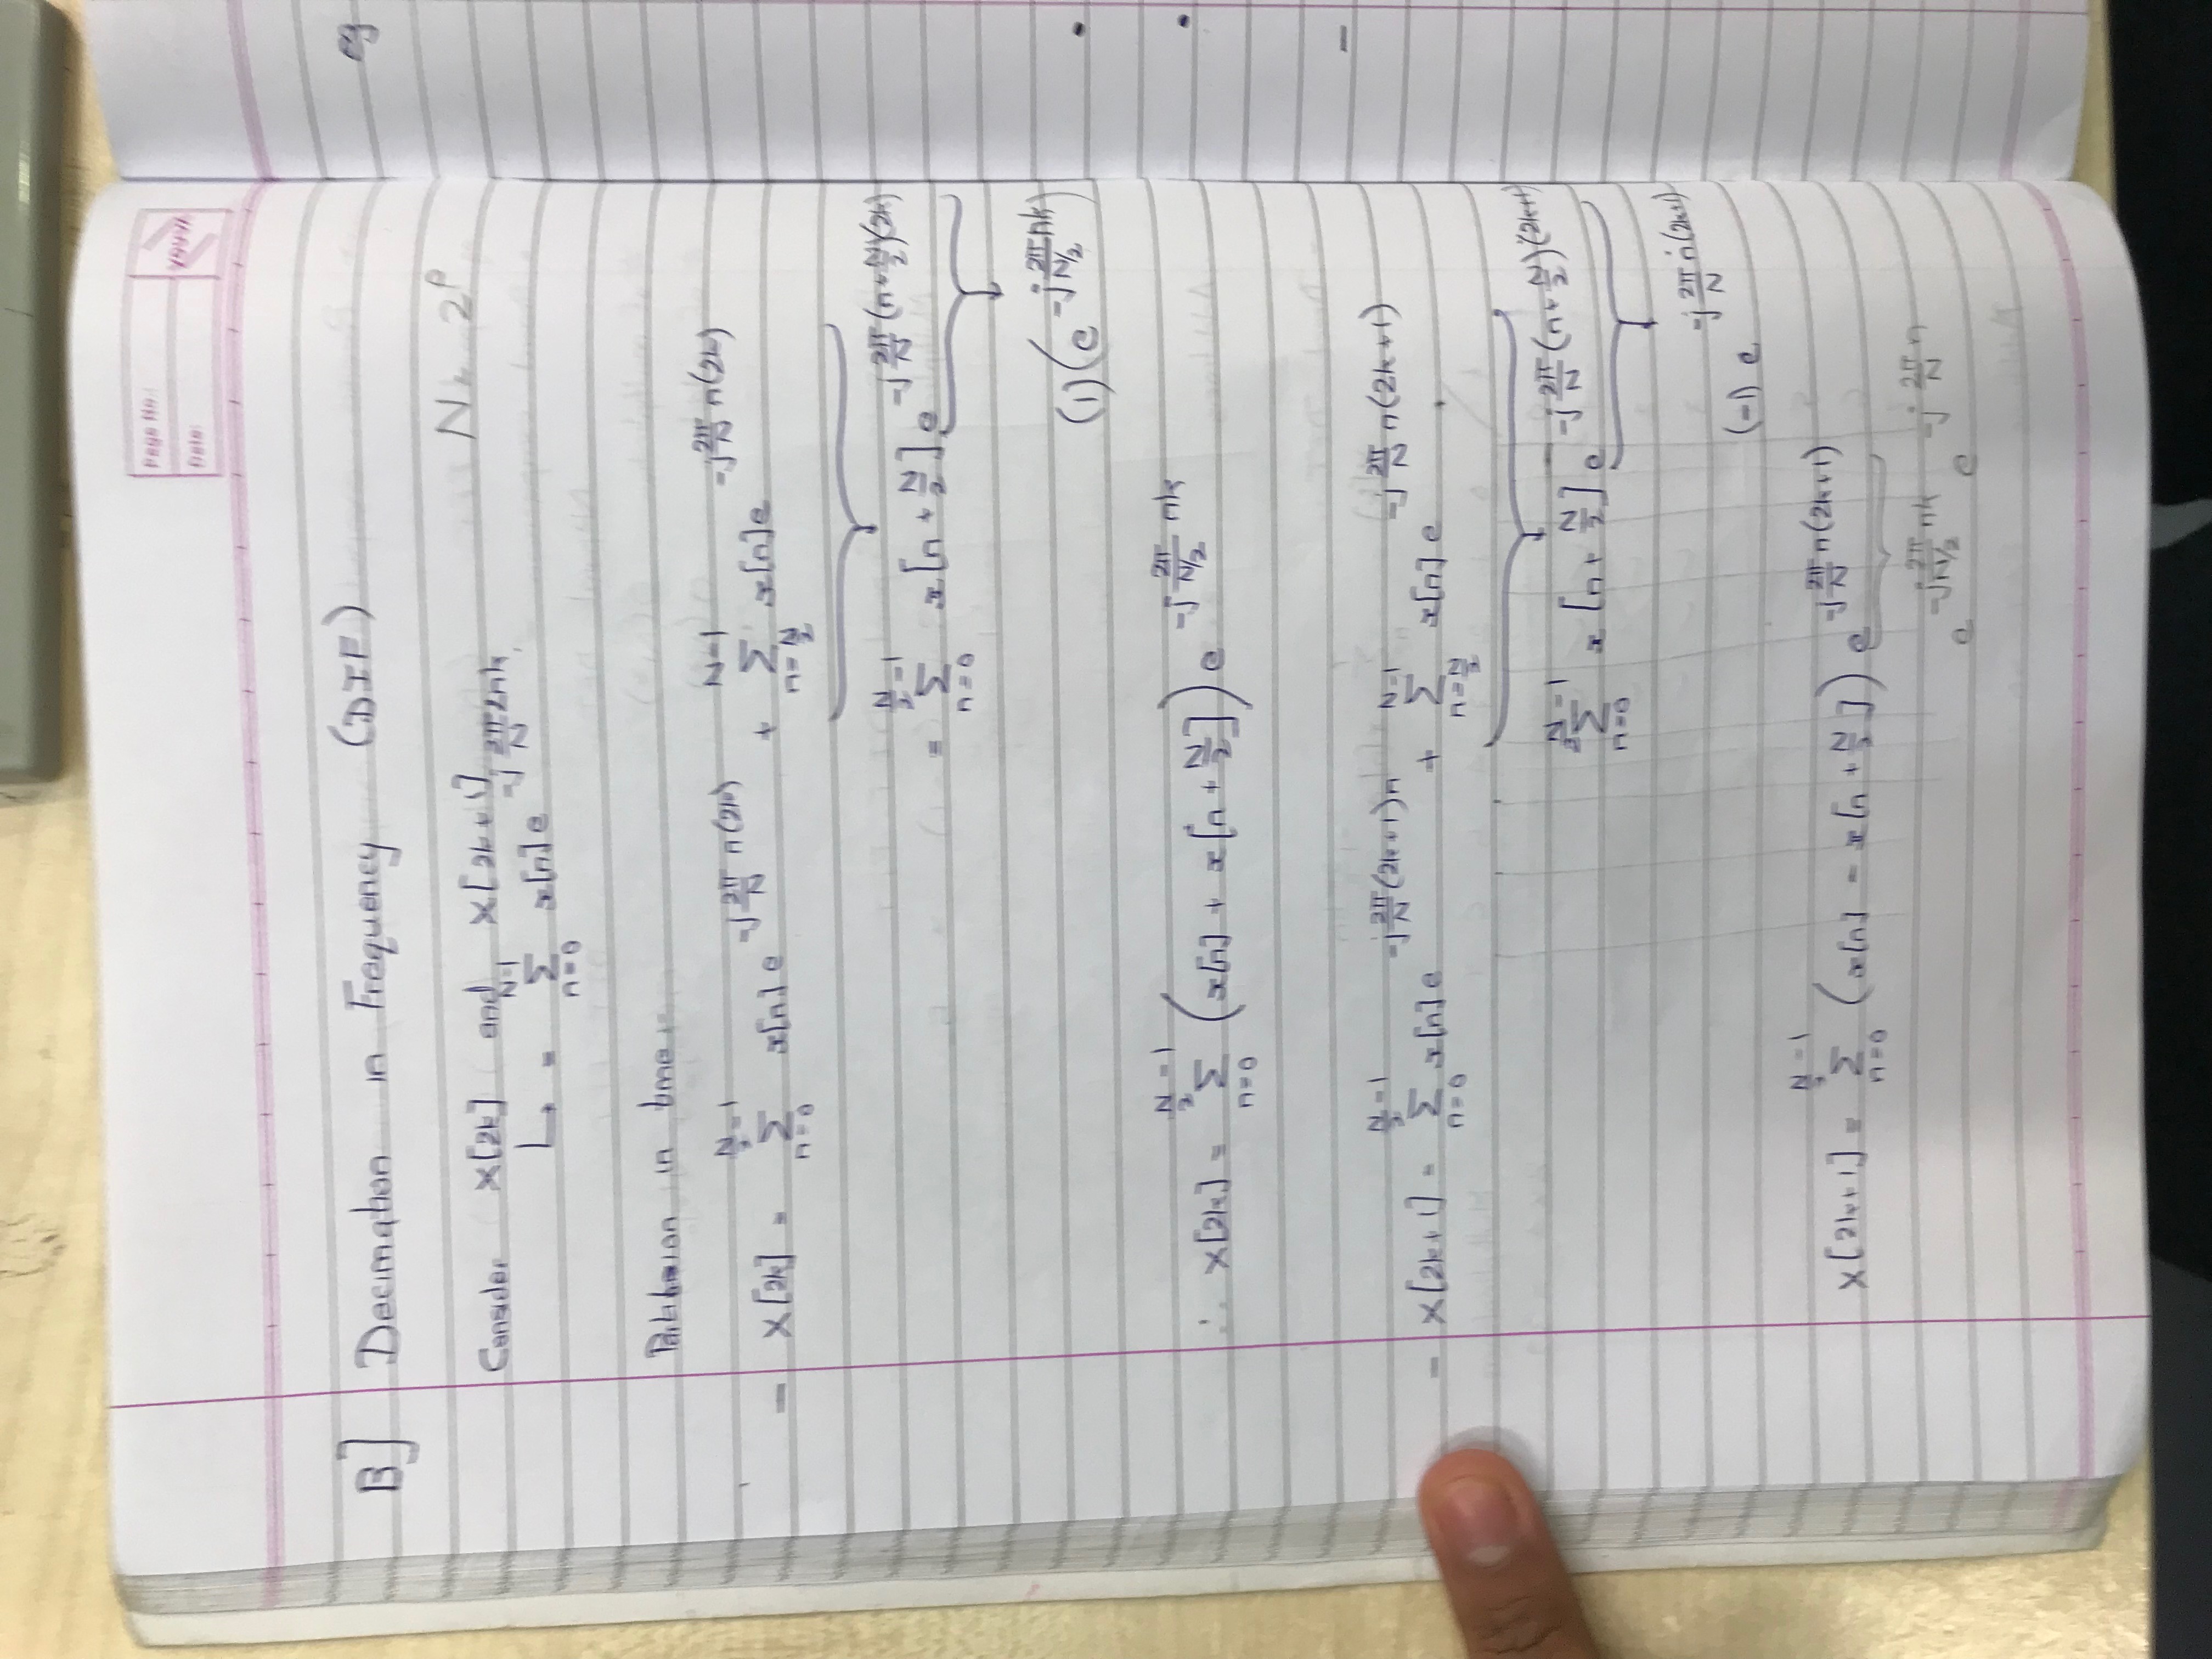 Page No.:
Date:
YOUVA
B] Decimation in Frequency (DIF)
N = 2^p
Consider X[2k] and X[2k+1]
↳ = Σ_{n=0}^{N-1} x[n] e^{-j 2π/N 2nk}
in time
- X[2k] = Σ_{n=0}^{N/2 -1} x[n] e^{-j 2π/N n(2k)} + Σ_{n=N/2}^{N-1} x[n] e^{-j 2π/N n(2k)}
= Σ_{n=0}^{N/2 -1} x[n + N/2] e^{-j 2π/N (n+N/2)(2k)}
(1)(e^{-j 2π/(N/2) nk})
∴ X[2k] = Σ_{n=0}^{N/2 -1} (x[n] + x[n + N/2]) e^{-j 2π/(N/2) nk}
- X[2k+1] = Σ_{n=0}^{N/2 -1} x[n] e^{-j 2π/N (2k+1)n} + Σ_{n=N/2}^{N-1} x[n] e^{-j 2π/N n(2k+1)}
Σ_{n=0}^{N/2 -1} x[n + N/2] e^{-j 2π/N (n+N/2)(2k+1)}
(-1) e^{-j 2π/N n(2k+1)}
X[2k+1] = Σ_{n=0}^{N/2 -1} (x[n] - x[n + N/2]) e^{-j 2π/N n(2k+1)}
e^{-j 2π/(N/2) nk} e^{-j 2π/N n}
eg